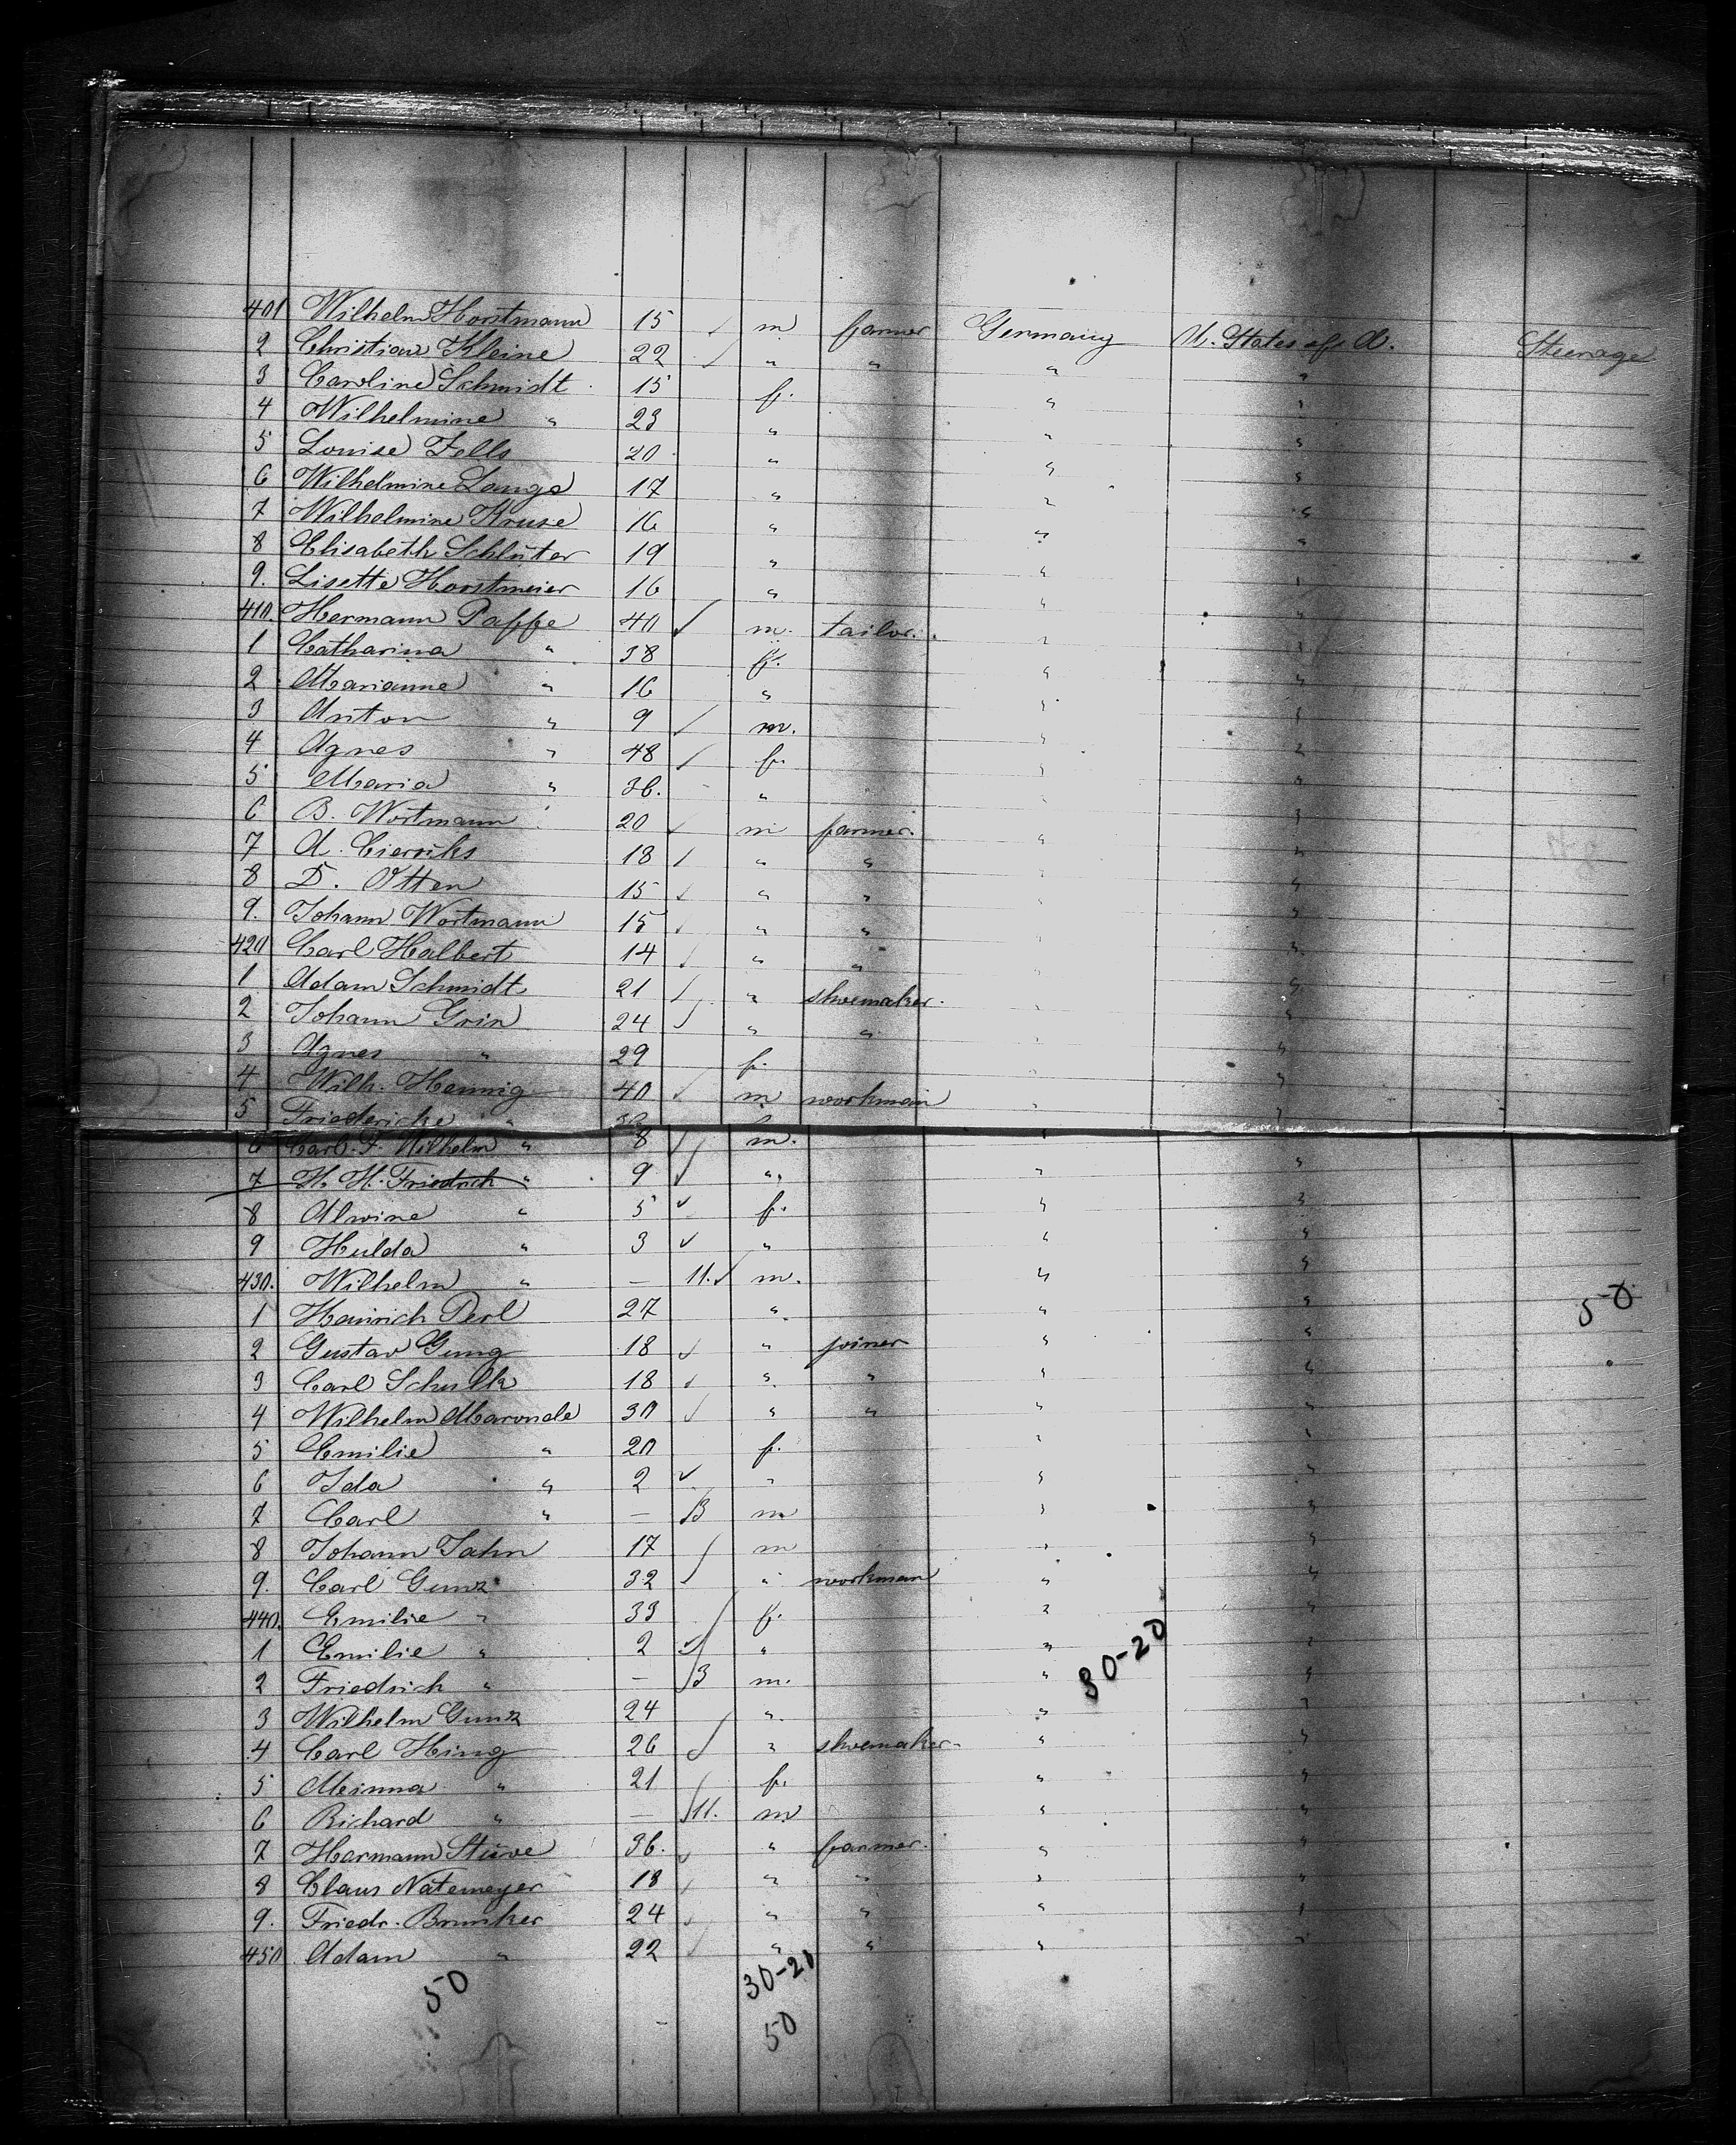 401 Wilhelm Horstmann 15 m farmer Germany U. States of A. Steerage
2 Christian Kleine 22 " " " "
3 Caroline Schmidt 15 f. " "
4 Wilhelmine " 23 " " "
5 Louise Fells 20 " " "
6 Wilhelmine Lange 17 " " "
7 Wilhelmine Kruse 16 " " "
8 Elisabeth Schlüter 19 " " "
9. Lisette Horstmeier 16 " " "
410. Hermann Paffe 40 m. tailor. " "
1 Catharina " 38 f. " "
2 Marianne " 16 " " "
3 Anton " 9 m. " "
4 Agnes " 48 f. " "
5 Maria " 36. " " "
6 B. Wortmann 20 m farmer. " "
7 A. 18 " " " "
8 D. Otten 15 " " " "
9. Johann Wortmann 15 " " " "
420 Carl Halbert 14 " " " "
1 Adam Schmidt 21 " shoemaker. " "
2 Johann Grin 24 " " " "
3 Agnes " 29 f. " "
4 Wilh. Hennig 40 m workman " "
5 Friedericke "
6 Carl. F. Wilhelm " 8 m. " "
7 H. H. Friedrich " 9 " " "
8 Alwine " 5 f. " "
9 Hulda " 3 " " "
430. Wilhelm " — 11. m. " "
1 Heinrich Perl 27 " " " 50
2 Gustav Gung 18 " joiner " "
3 Carl Schulk 18 " " " "
4 Wilhelm Maronde 30 " " " "
5 Emilie " 20 f. " "
6 Ida " 2 " " "
7 Carl " — 3 m " "
8 Johann Jahn 17 m " "
9. Carl Gunz 32 " workman " "
440. Emilie " 33 f. " "
1 Emilie " 2 " " 30-20 "
2 Friedrich " — 3 m. " "
3 Wilhelm Gunz 24 " " "
4 Carl Hing 26 " shoemaker " "
5 Minna " 21 f. " "
6 Richard " — 11. m " "
7 Hermann Stüve 36. " farmer. " "
8 Claus Natemeyer 18 " " " "
9. Friedr. Brunker 24 " " " "
450 Adam " 22 " " " "
50 30-20
50